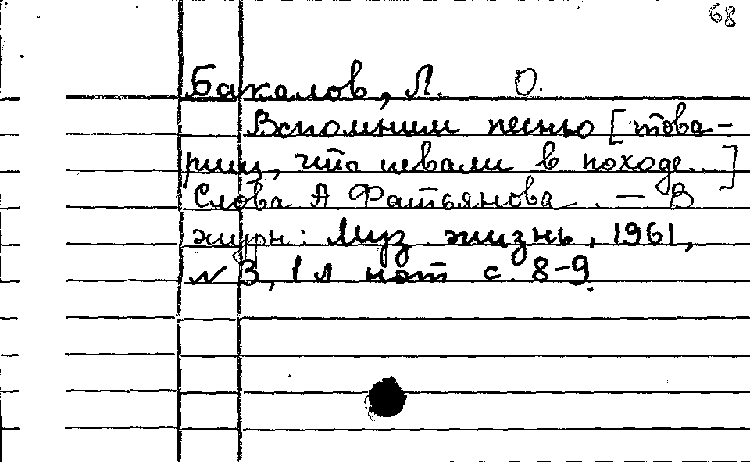 68
Бакалов, Л. О.
Вспомним песню [това-
рищ, что певали в походе...]
Слова А Фатьянова. — В
журн: Муз. жизнь, 1961,
№ 3, 1 л нот с. 8-9.